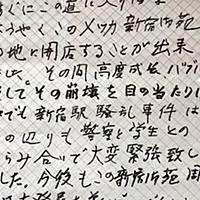 すぐにこの道に入り
ようやくのメッカ新宿西
の地に開店することが出来
その間高度成長、バブ
そしてその崩壊を目の当りに
でも新宿駅騒乱事件は
の辺りも警察と学生との
らみ合いで大変緊張致し
した。今後もこの新宿西